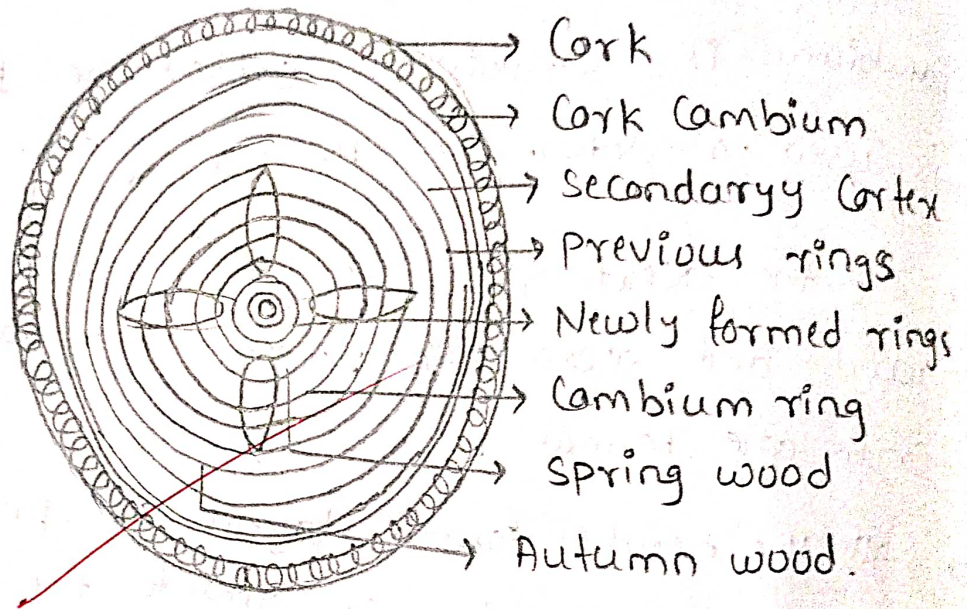 Cork
Cork Cambium
Secondaryy Cortex
Previous rings
Newly formed rings
Cambium ring
Spring wood
Autumn wood.